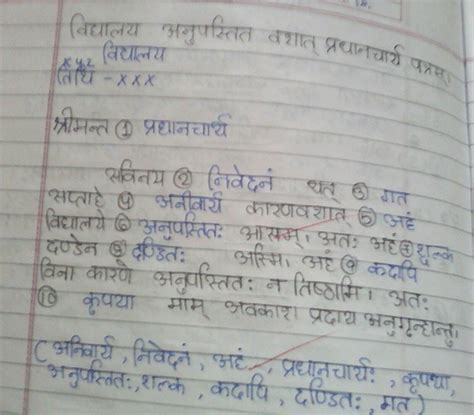 विद्यालय अनुपस्तित वशात् प्रधानचार्य पत्रम्।
xyz विद्यालय
तिथि - x x x
श्रीमन्त ① प्रधानचार्य
सविनय ② निवेदनं यत् ③ गत
सप्ताहे ④ अनीवार्य कारणवशात् ⑤ अहं
विद्यालये ⑥ अनुपस्तितः आसम्। अतः अहं ⑦ शुल्क
दण्डेन ⑧ दण्डितः अस्मि। अहं ⑨ कदापि
विना कारणे अनुपस्तितः न तिष्ठामि। अतः
⑩ कृपया माम् अवकाश प्रदाय अनुगृन्हान्तु।
(अनिवार्य, निवेदनं, अहं, प्रधानचार्यः, कृपया,
अनुपस्तितः, शल्क, कदापि, दण्डितः, गत)